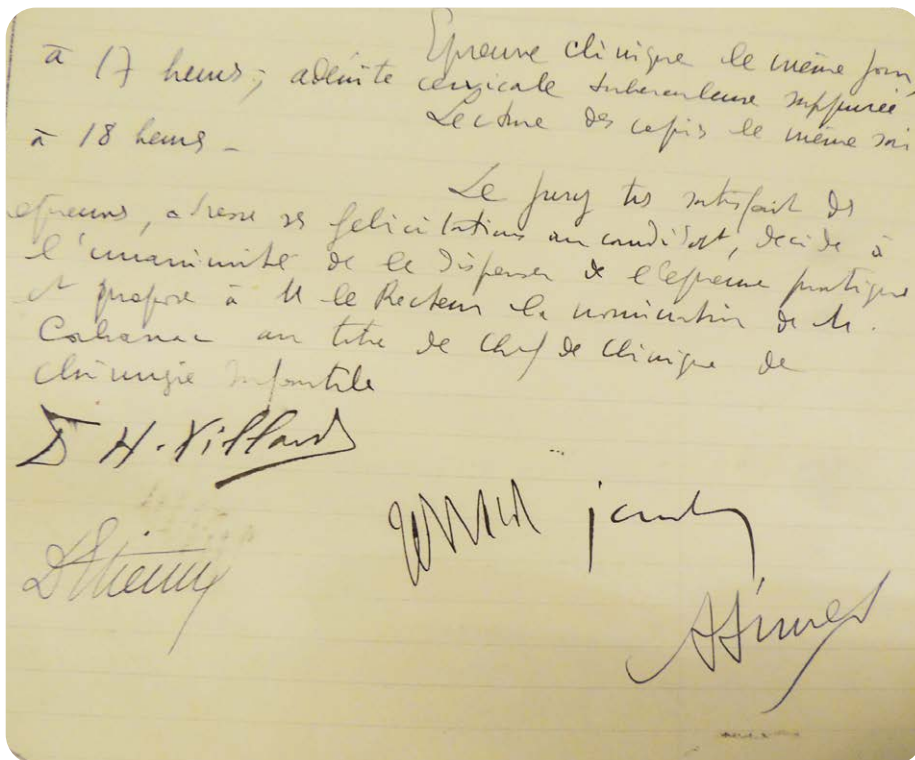 Epreuve clinique le même jour,
à 17 heures; adénite cervicale tuberculeuse suppurée
Lecture des copies le même soir
à 18 heures -
Le jury très satisfait des
épreuves, adresse ses félicitations au candidat, décide à
l'unanimité de le dispenser de l'épreuve pratique
et propose à M le Recteur la nomination de M.
Cabanac au titre de Chef de Clinique de
Chirurgie infantile
D H. Villard
DEtienne